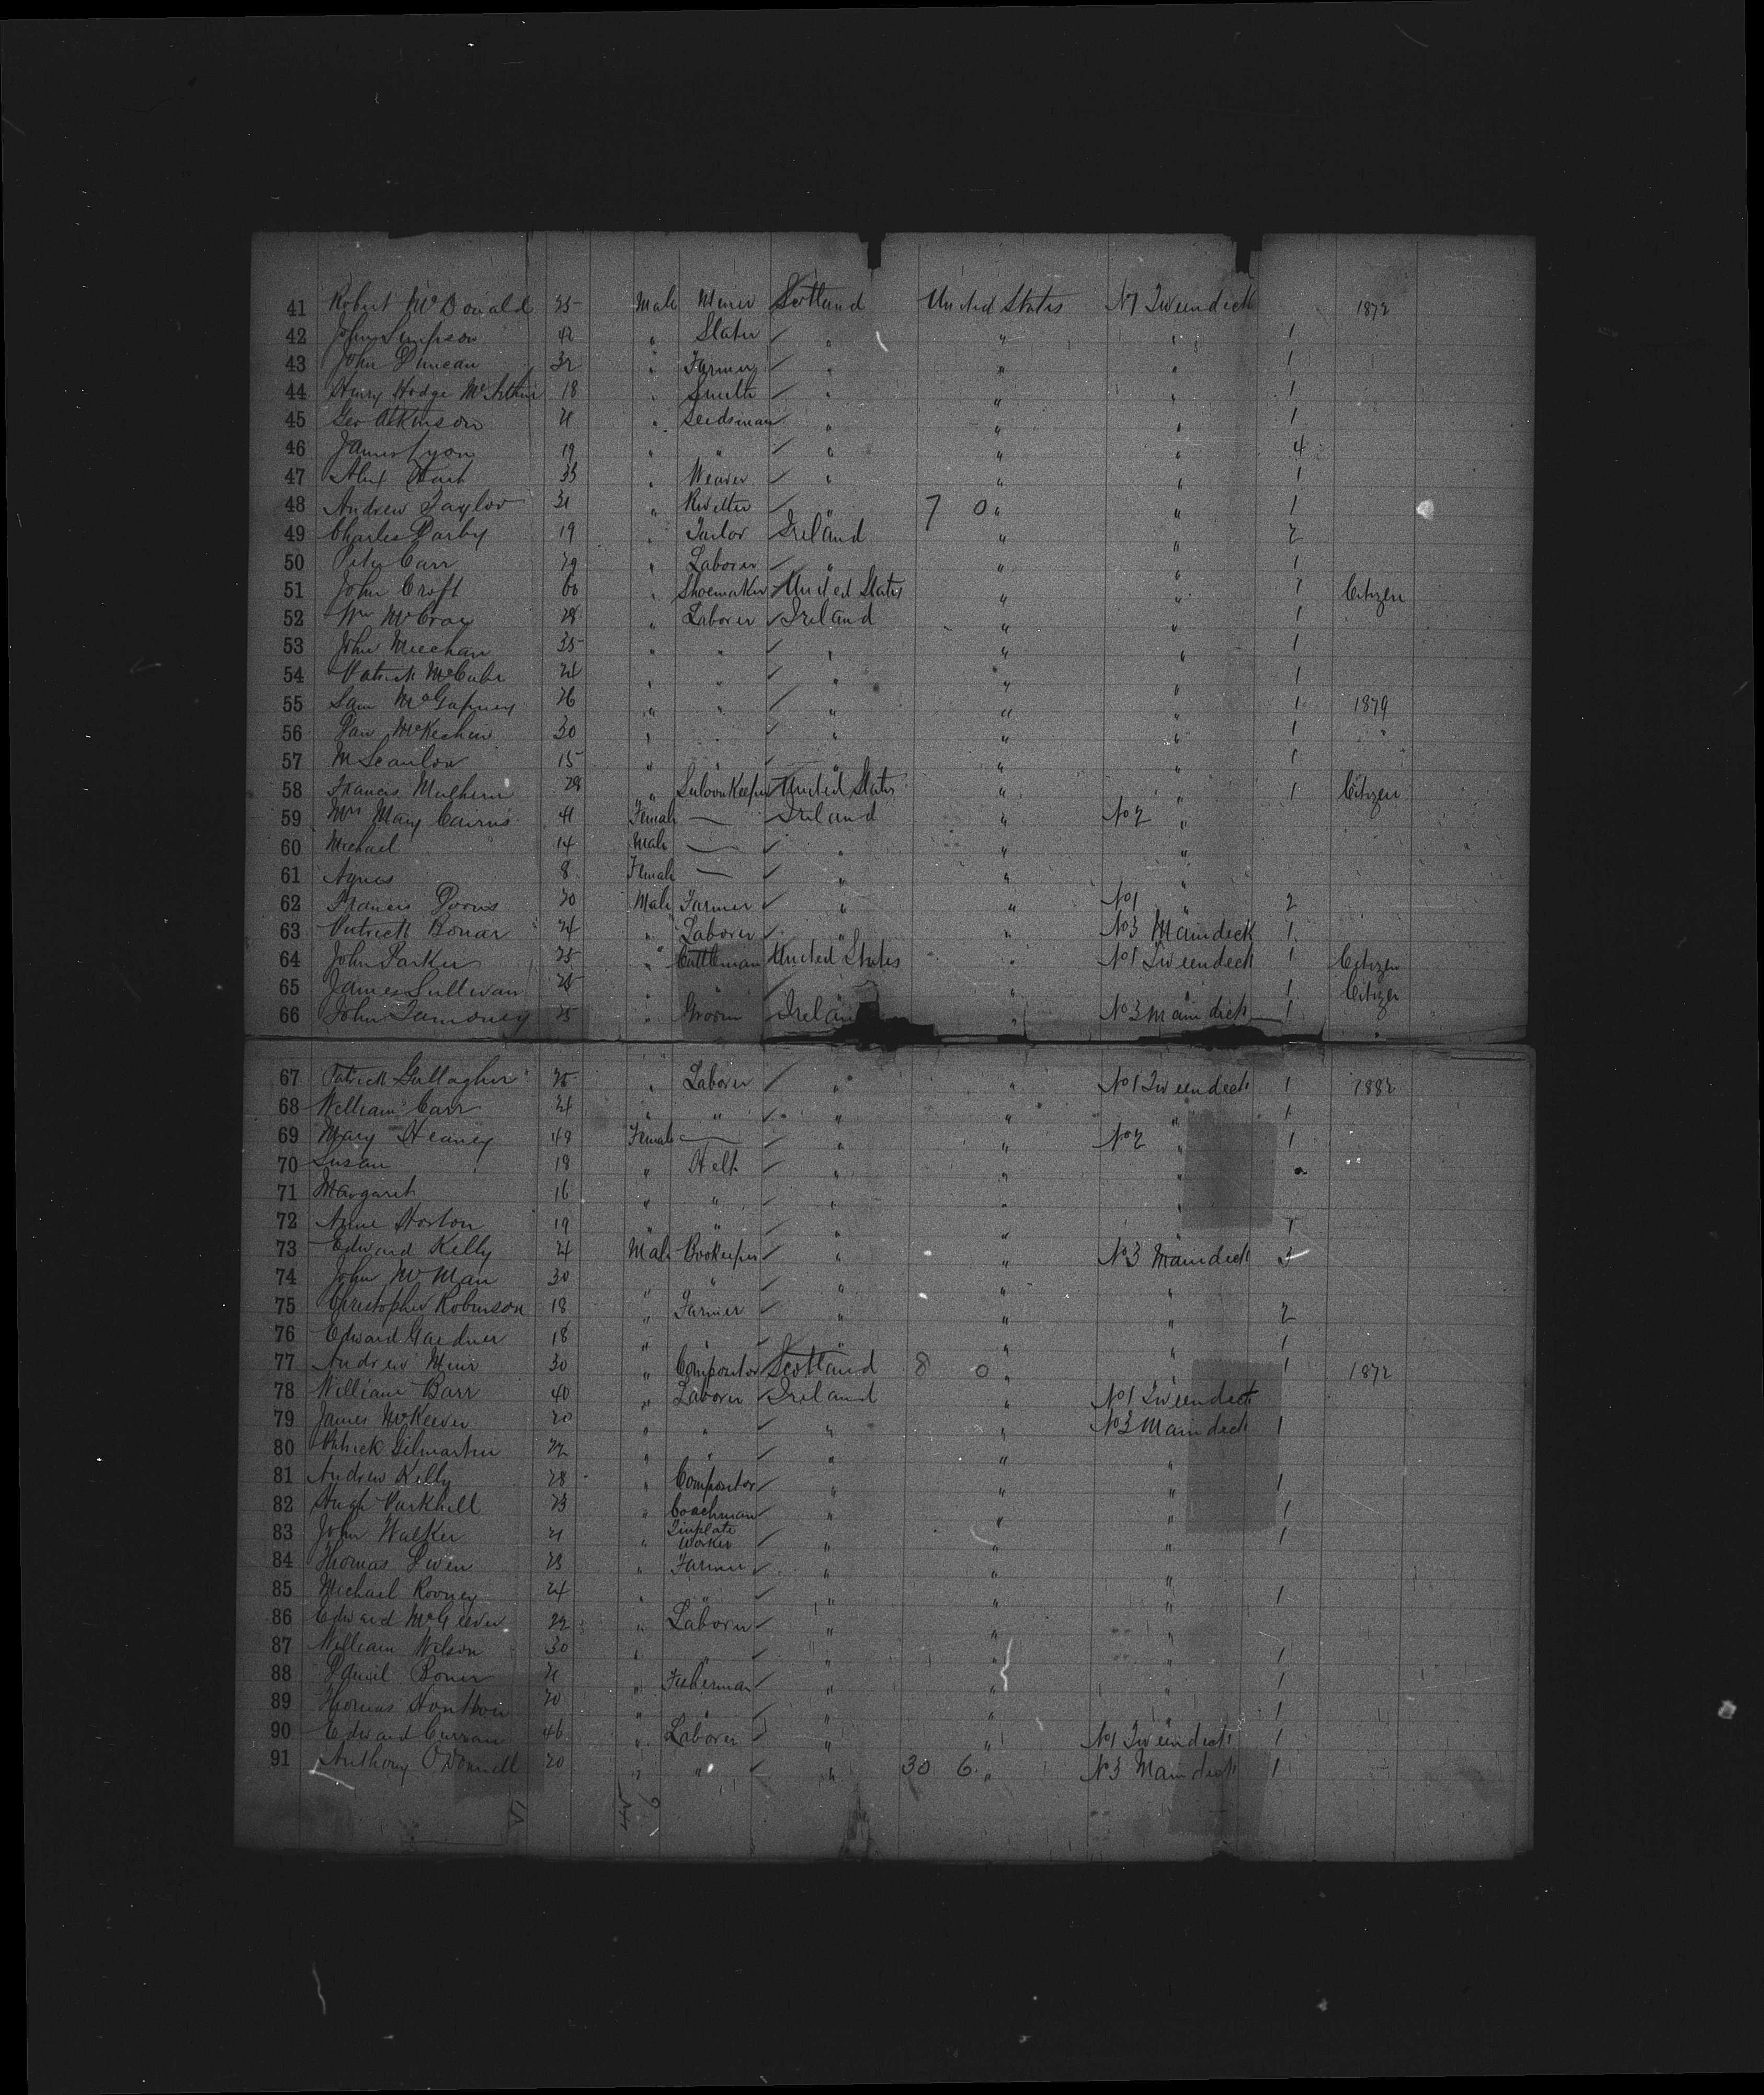 41 Robert McDonald 25 Male Miner Scotland United States No 1 Tweendeck 1872
42 John Simpson 42 " Slater " " " 1
43 John Duncan 32 " Farmer " " " 1
44 Henry Hodge McArthur 18 " Smith " " " 1
45 Geo Atkinson 21 " Seedsman " " " 1
46 James Lyon 19 " " " " " 4
47 Alex 33 " Weaver " " " 1
48 Andrew Taylor 31 " Rivetter " 7 0 " " 1
49 Charles Darby 19 " Tailor Ireland " " 2
50 Peter Carr 29 " Laborer " " " 1
51 John Croft 60 " Shoemaker United States " " Citizen
52 Wm McCray 28 " Laborer Ireland " " 1
53 John Meechan 35 " " " " " 1
54 Patrick McCabe 24 " " " " " 1
55 Sam 26 " " " " " 1 1879
56 Dan McKechin 30 " " " " " 1 "
57 M Scanlon 15 " " " " " 1
58 Francis Mulhern 28 " SaloonKeeper United States " " 1 Citizen
59 Mrs Mary Cairns 41 Female — Ireland " No 2 "
60 Michael 14 Male — " " "
61 Agnes 8 Female — " " "
62 Francis 20 Male Farmer " " No 1 " 2
63 Patrick Bonar 24 " Laborer " " No 3 Maindeck 1
64 John Parker 25 " Cattleman United States " No 1 Tweendeck 1 Citizen
65 James Sullivan " " " " " 1 Citizen
66 John Tamoney 25 " Groom Ireland " No 3 Maindeck 1 "
67 Patrick Gallagher 25 " Laborer " " No 1 Tweendeck 1 1882
68 William Carr 21 " " " " " 1
69 Mary Heaney 49 Female — " " No 2 " 1
70 Susan 19 " Help " " "
71 Margaret 16 " " " " "
72 Anne Horton 19 " " " " " 1
73 Edward Kelly 21 Male Bookeeper " " No 3 Maindeck
74 John McMan 30 " " " " "
75 Christopher Robinson 18 " Farmer " " " 2
76 Edward Gardner 18 " " " " " 1
77 Andrew Muir 30 " Compositor Scotland 8 0 " " 1 1872
78 William Barr 40 " Laborer Ireland " No 1 Tweendeck
79 James McKeever 20 " " " " No 3 Maindeck 1
80 Patrick Gilmartin 22 " " " " "
81 Andrew Kelly 28 " Compositor " " " 1
82 Hugh Parkhill 23 " Coachman " " " 1
83 John Walker 21 " Tinplate Worker " " " 1
84 Thomas 23 " Farmer " " "
85 Michael Rooney 24 " " " " " 1
86 Edward 22 " Laborer " " "
87 William Wilson 30 " " " " " 1
88 Daniel Boner 21 " Fisherman " " " 1
89 Thomas 20 " " " " " 1
90 Edward Curran 46 " Laborer " " No 1 Tweendeck 1
91 Anthony O'Donnell 20 " " " 30 6 " No 3 Maindeck 1